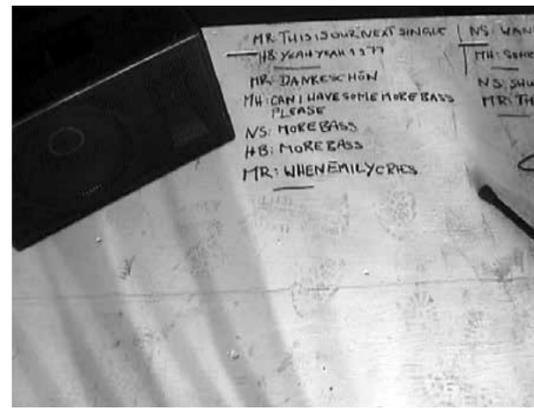 MR: THIS IS OUR NEXT SINGLE
HB: YEAH YEAH 1977
MR: DANKESCHÖN
MH: CAN I HAVE SOME MORE BASS
PLEASE
NS: MORE BASS
HB: MORE BASS
MR: WHEN EMILY CRIES
NS: WAN
MH: SOME
NS: SHU
MR: TH